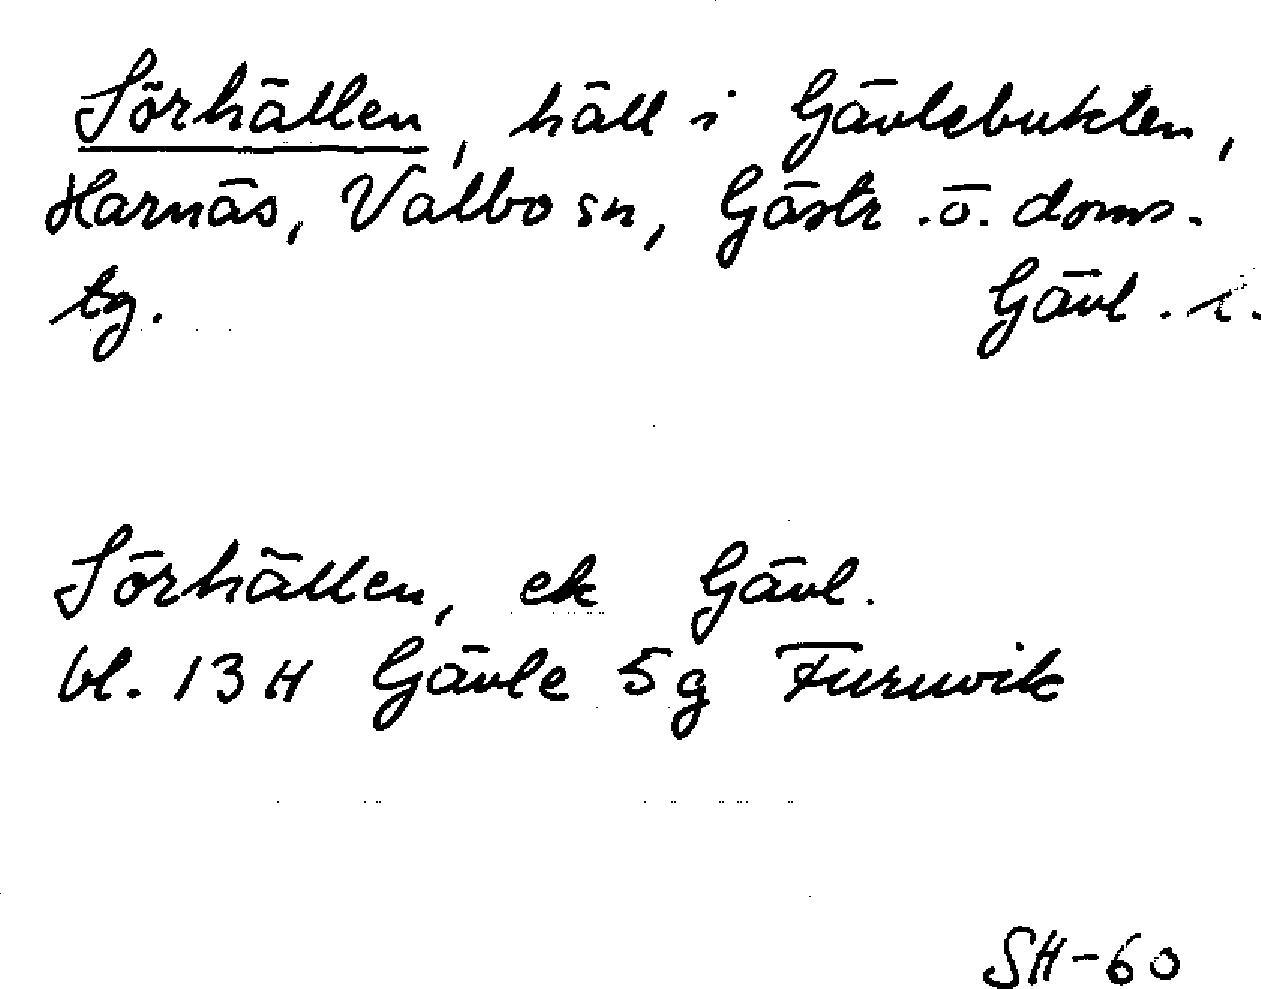 Sörhällen, häll i Gävlebukten,
Harnäs, Valbo sn, Gästr. ö. doms.
tg. Gävl. l.
Sörhällen, ek Gävl.
bl. 13 H Gävle 5 g Furuvik
SH-60